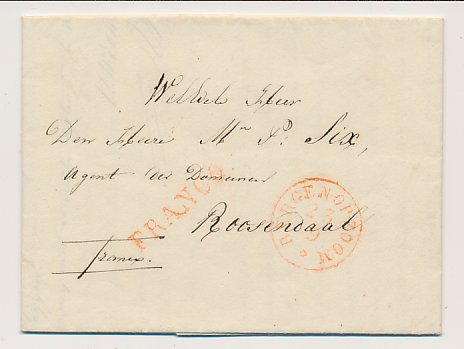 WelEdel Heer
Den Heere Mr P: Six,
Agent der Domeinen
FRANCO
Roosendaal
franco.
BERGEN OP ZOOM
23
9